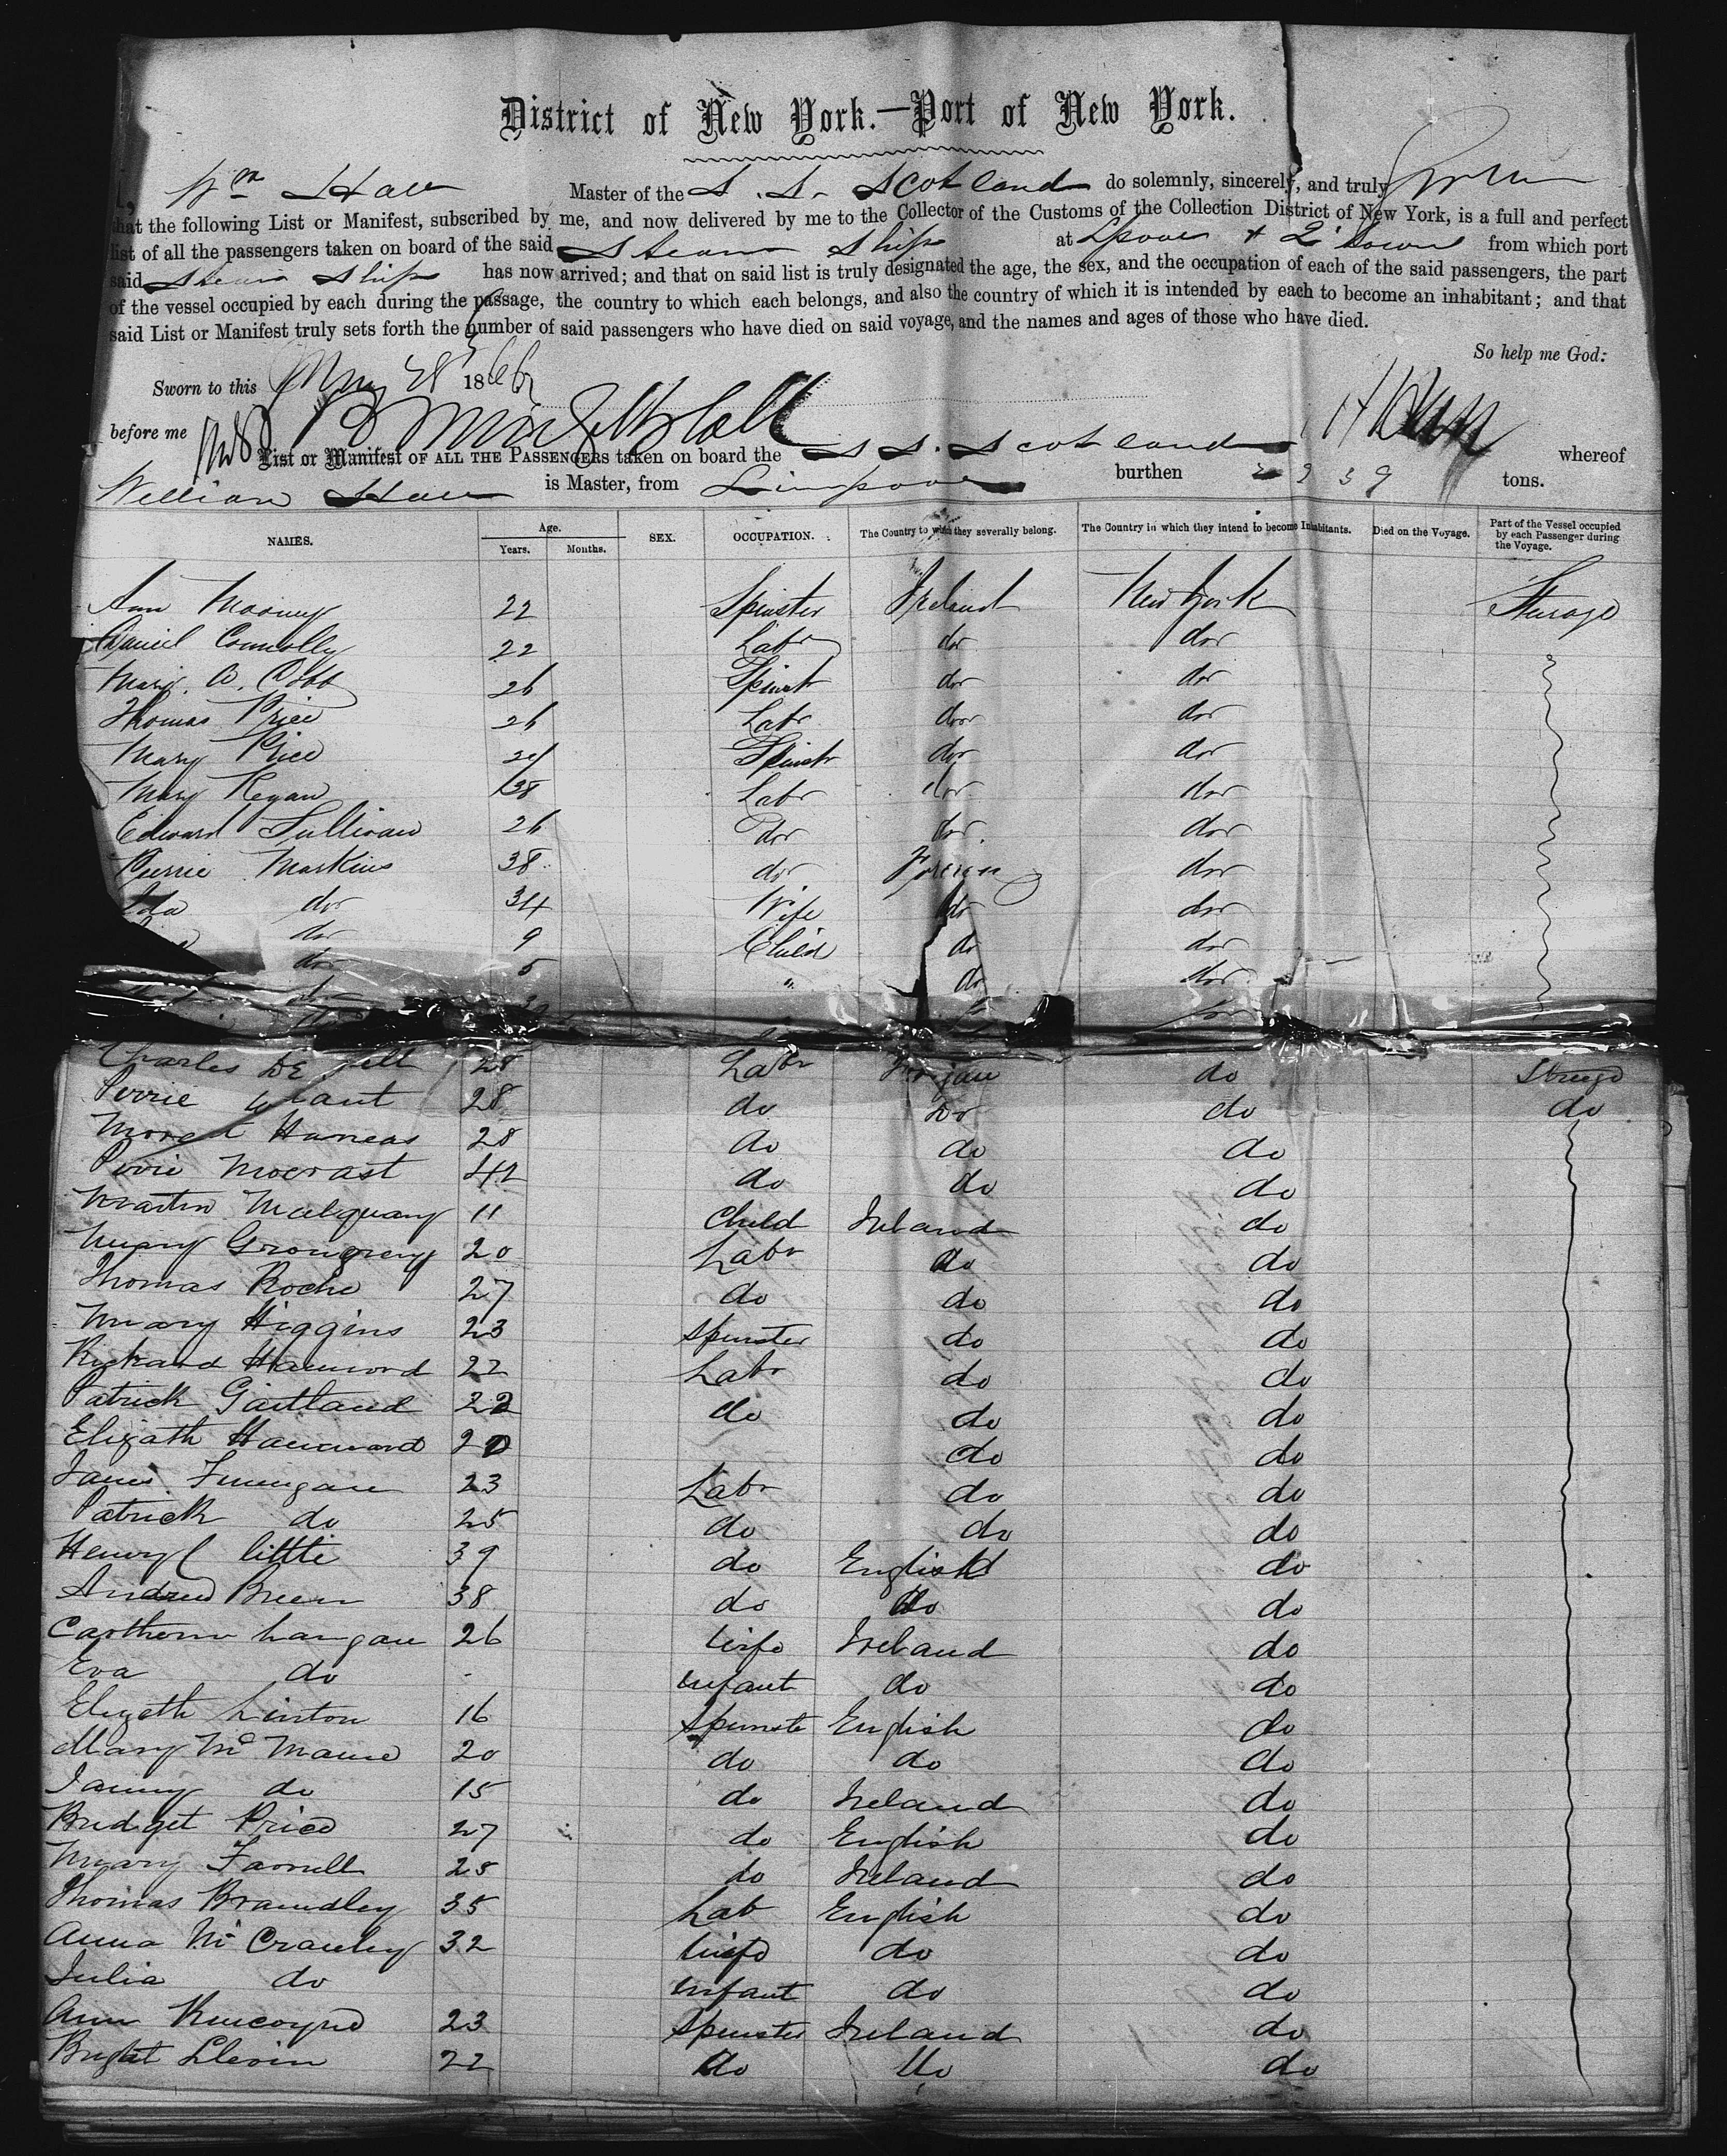 District of New York.—Port of New York.
I, Wm Hall Master of the S. S. Scotland do solemnly, sincerely, and truly
that the following List or Manifest, subscribed by me, and now delivered by me to the Collector of the Customs of the Collection District of New York, is a full and perfect
list of all the passengers taken on board of the said Steam Ship at Lpool & Q'town from which port
said Steam Ship has now arrived; and that on said list is truly designated the age, the sex, and the occupation of each of the said passengers, the part
of the vessel occupied by each during the passage, the country to which each belongs, and also the country of which it is intended by each to become an inhabitant; and that
said List or Manifest truly sets forth the number of said passengers who have died on said voyage, and the names and ages of those who have died.
So help me God:
Sworn to this May 28 1866
before me Wm Hall
List or Manifest OF ALL THE PASSENGERS taken on board the S S. Scotland whereof
William Hall is Master, from Liverpool burthen tons.
NAMES. Age. Years. Months. SEX. OCCUPATION. The Country to which they severally belong. The Country in which they intend to become Inhabitants. Died on the Voyage. Part of the Vessel occupied by each Passenger during the Voyage.
Ann Mooney 22 Spinster Ireland New York Sterage
Daniel Connolly 22 Labr do do
Mary. A. 26 Spinstr do do
Thomas Price 26 Labr do do
Mary Price Spinstr do do
Mary Regan 38 Labr do do
Edward Sullivan 26 do do do
Pierrie Markins 38 do Foreign do
Ida do 34 Wife do do
do 9 Child do do
do 5 " do do
Charles De 28 Labr Forgan do Streege
Perrie Grant 28 do do do do
Harneas 28 do do do
Perrie Mocrast 42 do do do
Martin 11 Child Ireland do
Mary 20 Labr do do
Thomas Roche 27 do do do
Mary Higgins 23 Spinster do do
Richard Hamword 22 Labr do do
Patrick Gartland 22 do do do
Elizath Hamward 20 do do
James Finnegan 23 Labr do do
Patrick do 25 do do do
Henry little 39 do English do
Andrew Breen 38 do do do
Cartherin Langan 26 Wife Ireland do
Eva do Infant do do
Elizath Linton 16 Spinste English do
Mary Mc Manie 20 do do do
Janny do 15 do Ireland do
Bridget Price 27 do English do
Mary Farrell 25 do Ireland do
Thomas Bramdley 35 Lab English do
Anna Mc Crawley 32 Wife do do
Julia do Infant do do
Ann 23 Spinster Ireland do
Slevin 22 do do do